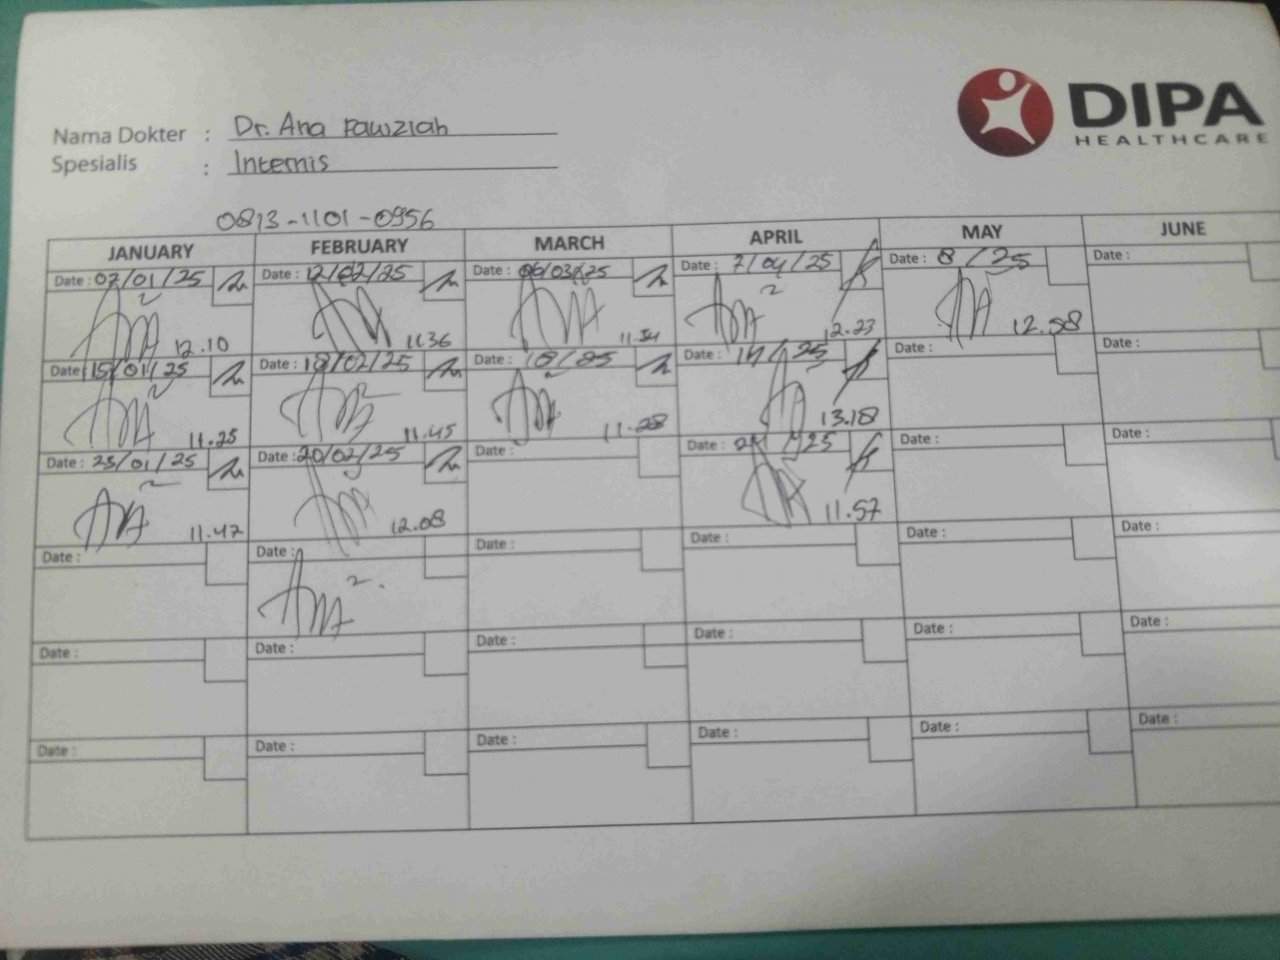 DIPA
HEALTHCARE
Nama Dokter : Dr. Ana Fawziah
Spesialis : Internis
0813-1101-0956
JANUARY FEBRUARY MARCH APRIL MAY JUNE
Date : 07/01/25 Date : 12/02/25 Date : 06/03/25 Date : 7/04/25 Date : 8 / 25 Date :
12.10 11.36 11.34 12.23 12.58
Date : 15/01/25 Date : 18/02/25 Date : 18/ 25 Date : 14/ 25 Date : Date :
11.25 11.45 11.28 13.18
Date : 23/01/25 Date : 20/02/25 Date : Date : 25 Date : Date :
11.47 12.08 11.57
Date : Date : Date : Date : Date : Date :
Date : Date : Date : Date : Date : Date :
Date : Date : Date : Date : Date : Date :